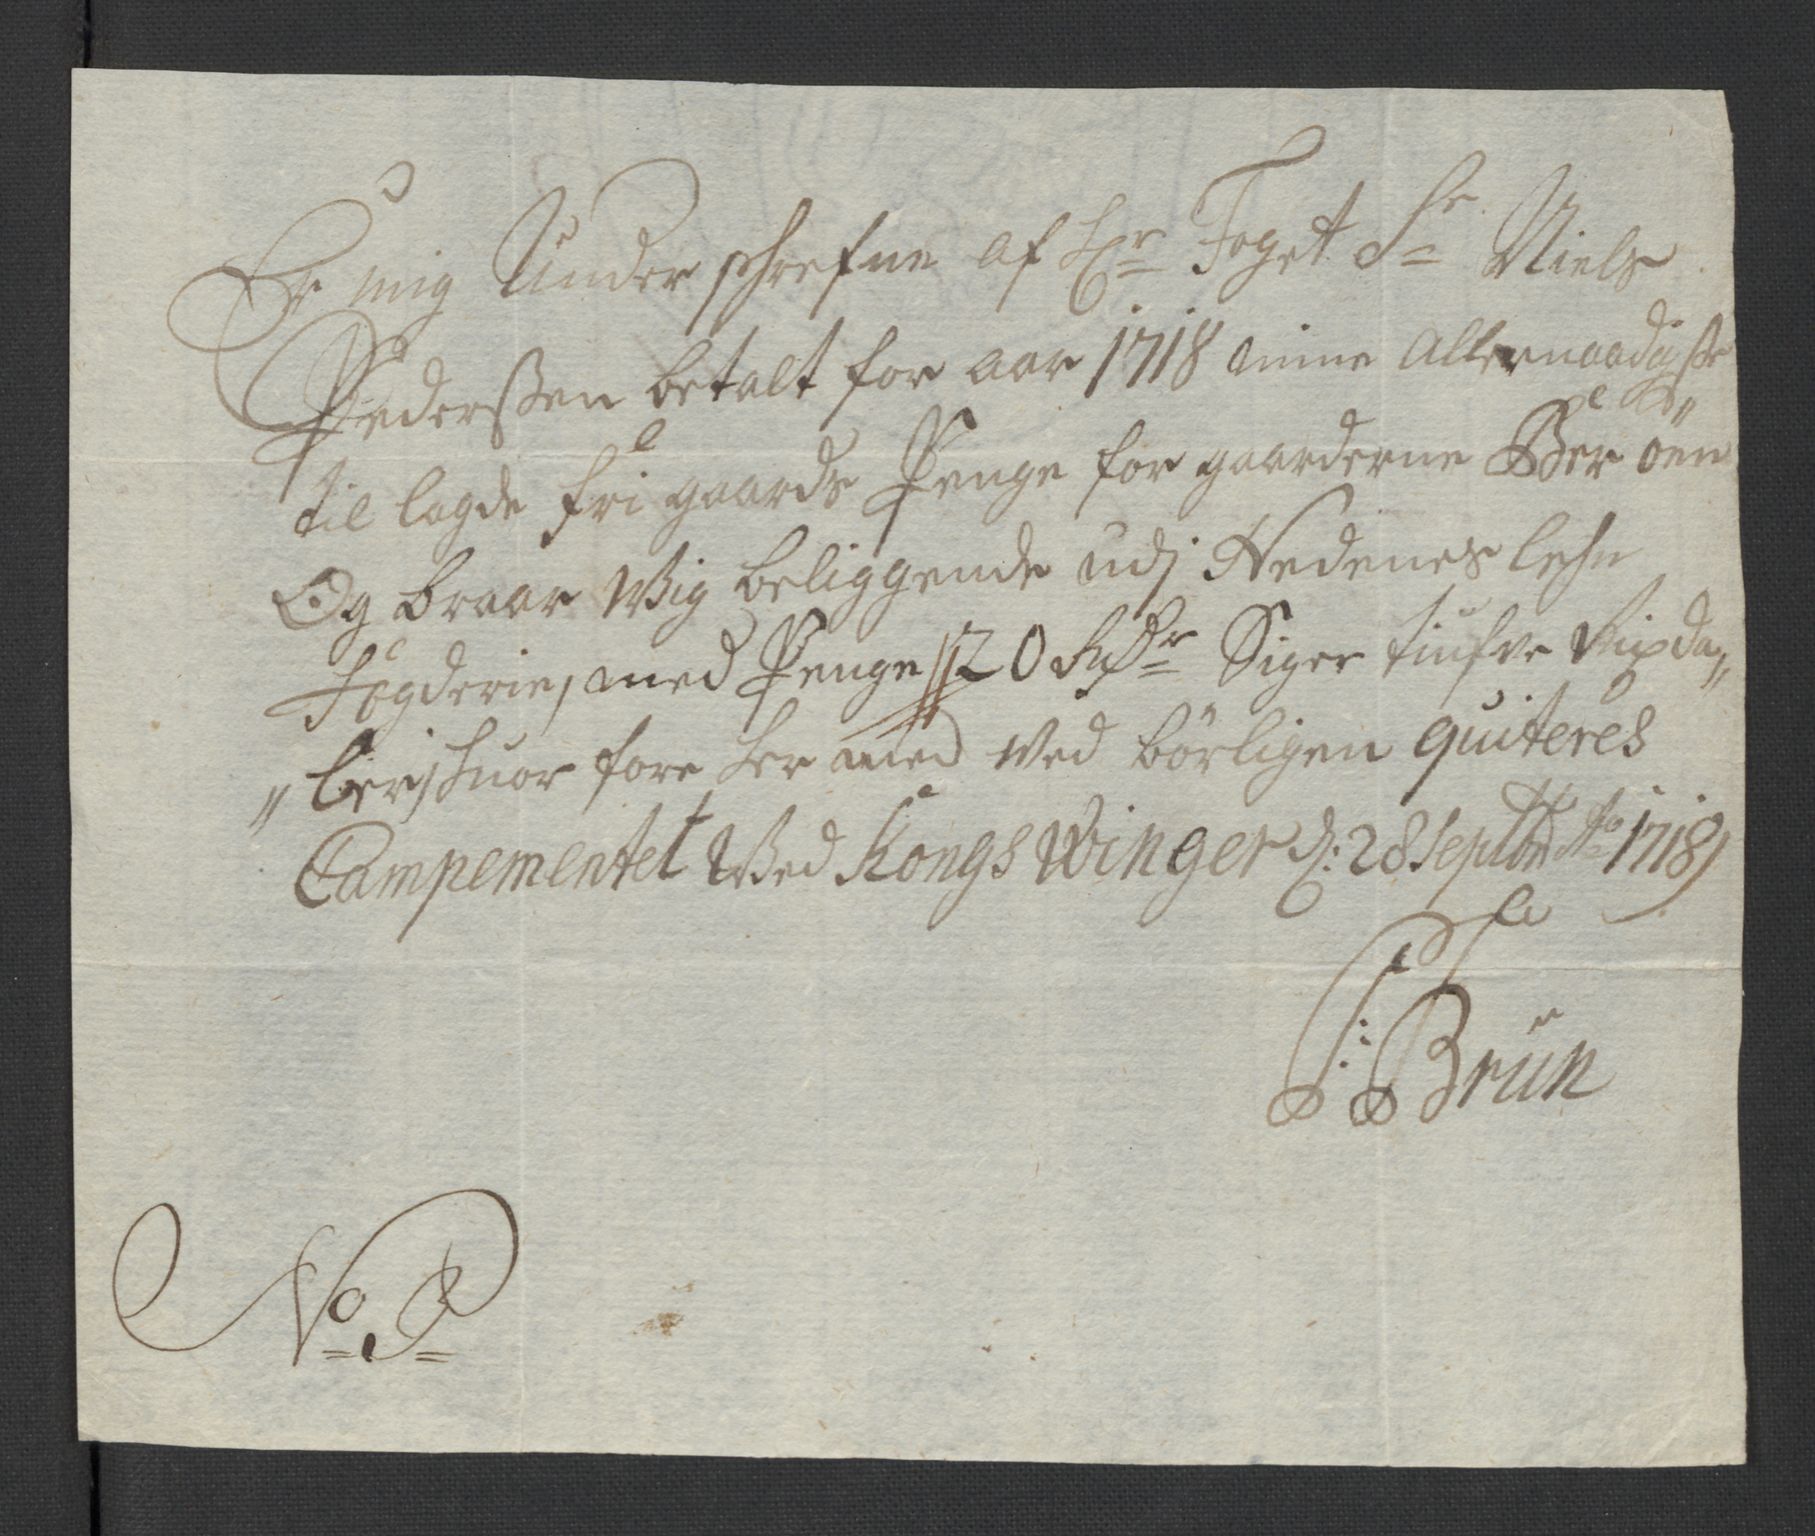 Er mig Under schrefne af Hr Foget Sr Niels
Pederssen betalt for aar 1718 mine Allernaadigste
til lagde fri gaards Penge for gaarderne Ber öen
Og braar Wig beliggende udj Nedenes lehn
Fogderie, med Penge 20 Rdr Siger tiufve Rixda„
„ler, huor fore her med Ved börligen quiteres
Campementet Wed Kongs Winger d: 28 Septbr Ao 1718
Brün
No